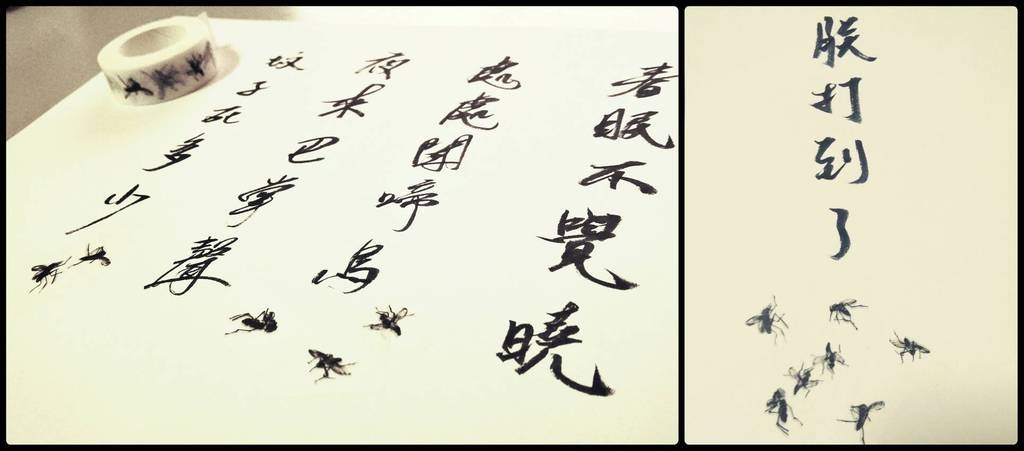 春眠不覺曉
處處聞啼鳴
夜來巴掌聲
蚊子死多少
朕打到了